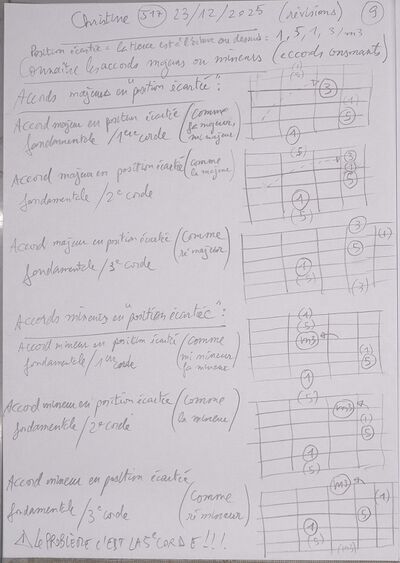 Christine 517 23/12/2025 (révisions) 9
Position écartée = la tierce est à l'octave au dessus : 1, 5, 1, 3/m3
Connaître les accords majeurs ou mineurs (accords consonants)
Accords majeurs en "position écartée" :
(5)
3
Accord majeur en position écartée (comme
fa majeur,
mi majeur)
fondamentale / 1ère corde
(1)
5
1
Accord majeur en position écartée (comme
la majeur)
fondamentale / 2e corde
(5)
3
1
5
1
(5)
Accord majeur en position écartée (comme
ré majeur)
fondamentale / 3e corde
3
(1)
5
1
(5)
(3)
Accords mineurs en "position écartée" :
Accord mineur en position écartée (comme
mi mineur
fa mineur)
fondamentale / 1ère corde
(1)
(5)
m3
(1)
5
1
(5)
Accord mineur en position écartée (comme
la mineur)
fondamentale / 2e corde
m3
(1)
5
1
(5)
Accord mineur en position écartée
(comme
ré mineur)
fondamentale / 3e corde
m3
1
5
1
(5)
(m3)
⚠ LE PROBLÈME C'EST LA 5e CORDE !!!